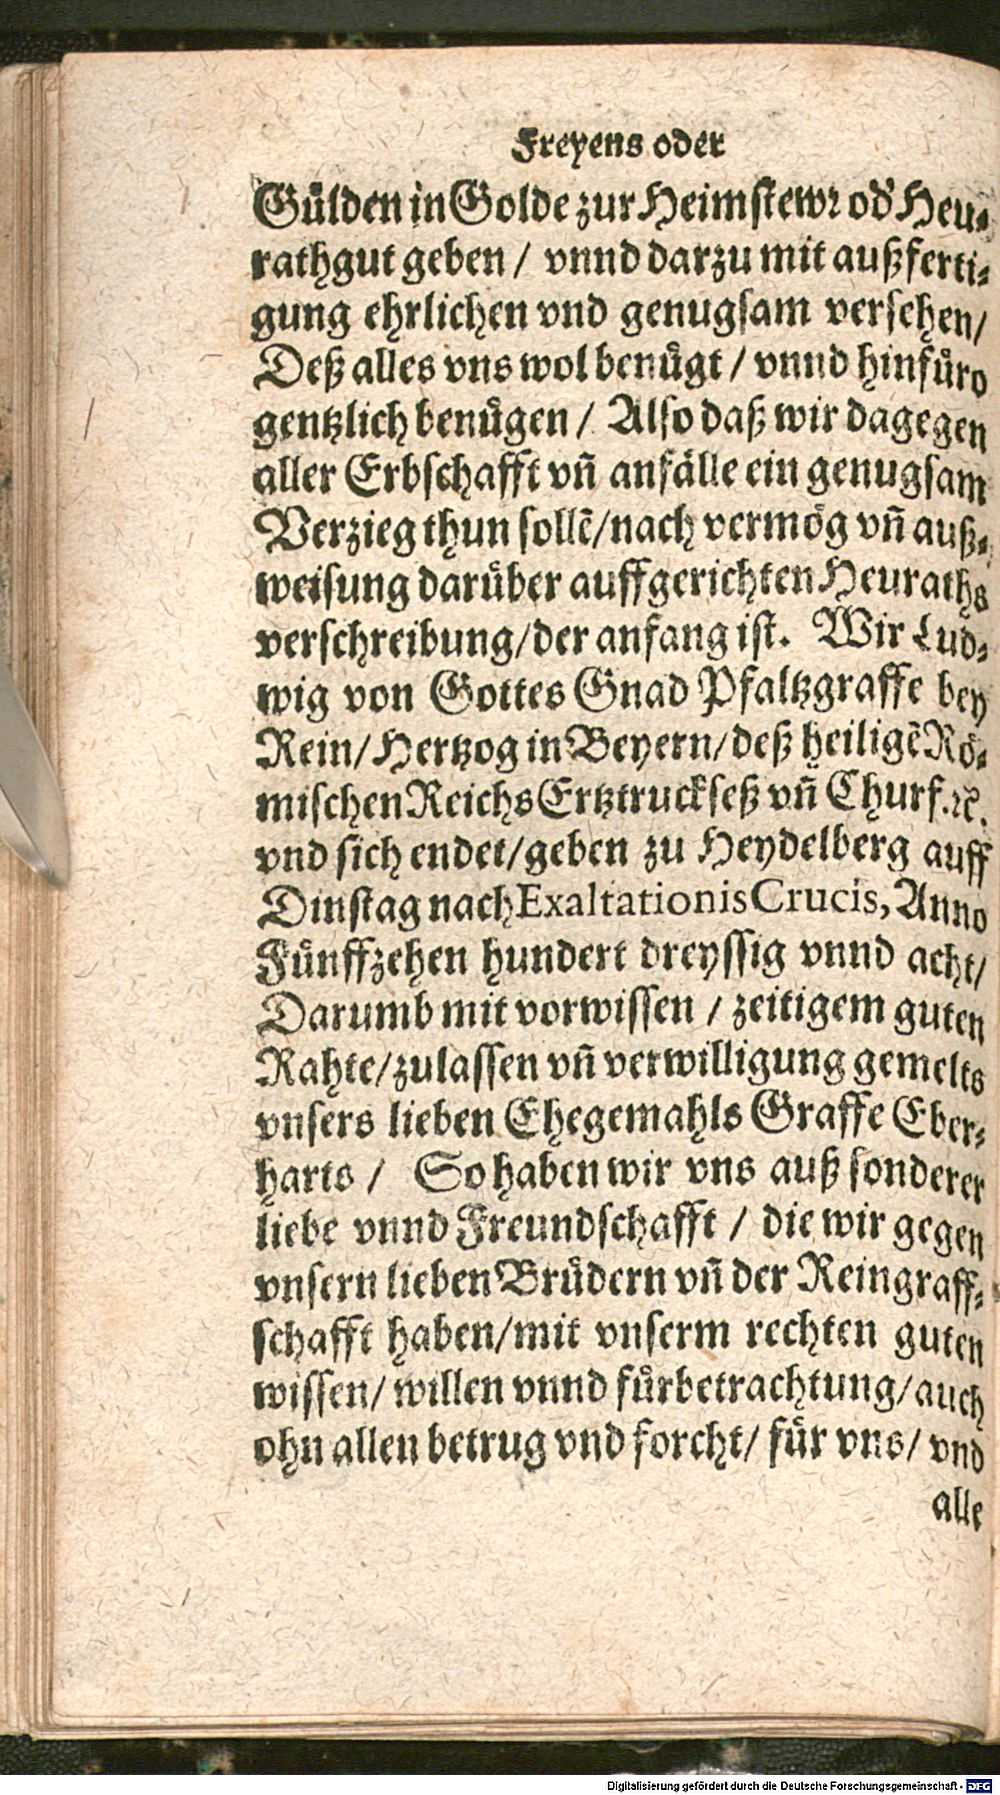 Freyens oder
Guͤlden in Golde zur Heimstewr od' Heu⸗
rathgut geben / vnnd darzu mit außferti⸗
gung ehrlichen vnd genugsam versehen/
Deß alles vns wol benuͤgt / vnnd hinfuͤro
gentzlich benuͤgen / Also daß wir dagegen
aller Erbschafft vñ anfaͤlle ein genugsam
Verzieg thun sollẽ/nach vermoͤg vñ auß⸗
weisung daruͤber auffgerichten Heuraths
verschreibung/der anfang ist. Wir Lud⸗
wig von Gottes Gnad Pfaltzgraffe bey
Rein/Hertzog in Beyern/deß heiligẽ Roͤ⸗
mischen Reichs Ertztruckseß vñ Churf.ꝛc.
vnd sich endet/geben zu Heydelberg auff
Dinstag nach Exaltationis Crucis, Anno
Fuͤnffzehen hundert dreyssig vnnd acht/
Darumb mit vorwissen / zeitigem guten
Rahte/zulassen vñ verwilligung gemelts
vnsers lieben Ehegemahls Graffe Eber⸗
harts / So haben wir vns auß sonderer
liebe vnnd Freundschafft / die wir gegen
vnsern lieben Bruͤdern vñ der Reingraff⸗
schafft haben/mit vnserm rechten guten
wissen/ willen vnnd fuͤrbetrachtung/auch
ohn allen betrug vnd forcht/ fuͤr vns/ vnd
alle
Digitalisierung gefördert durch die Deutsche Forschungsgemeinschaft - DFG